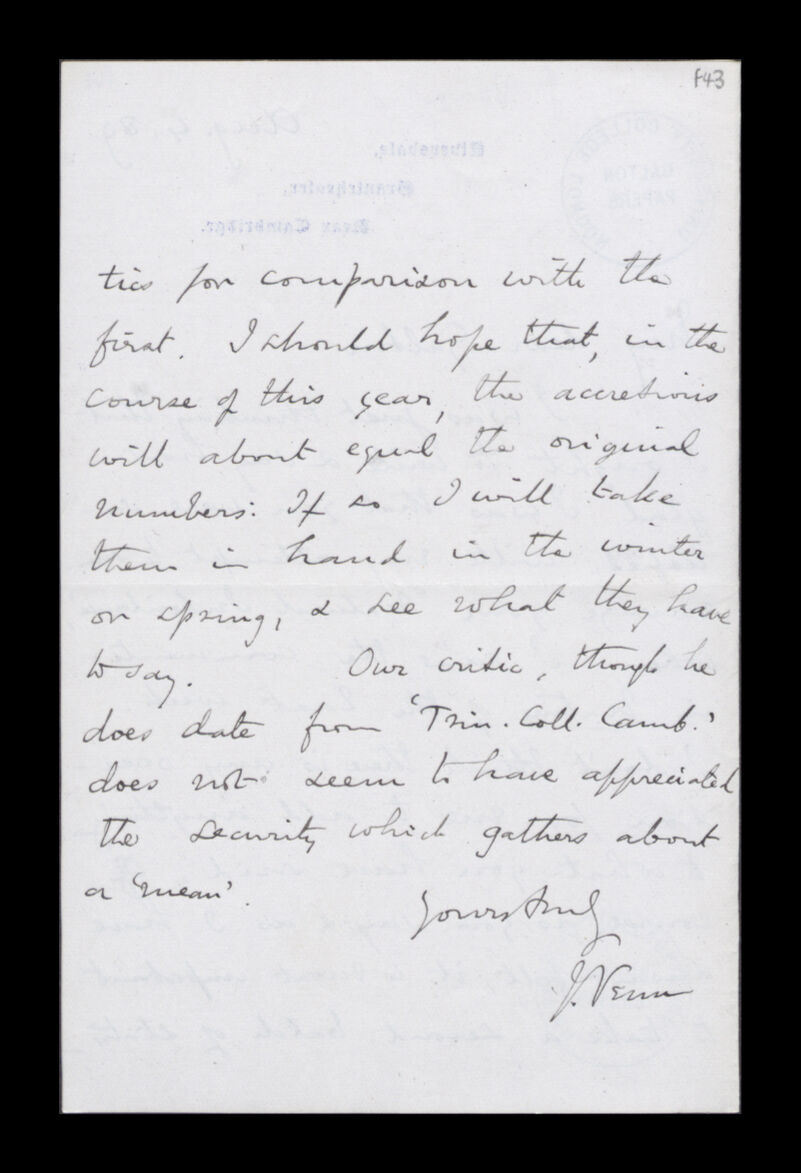 f43
tics for comparison with the
first. I should hope that, in the
course of this year, the accretions
will about equal the original
numbers: If so I will take
them in hand in the winter
or spring, & see what they have
to say. Our critic, though he
does date from 'Trin. Coll. Camb.'
does not seem to have appreciated
the security which gathers about
a 'mean'.
Yours truly
J. Venn